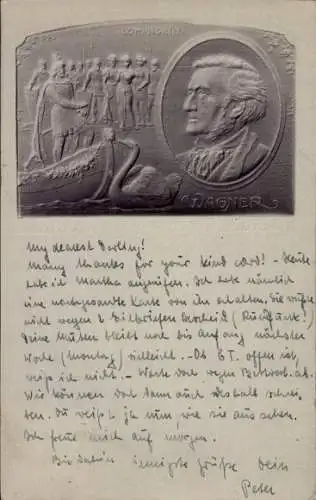 LOHENGRIN
WAGNER
My dearest Darling!
Many thanks for your kind card! – Heute
habe ich Martha angerufen. Ich habe nämlich
eine nachgesandte Karte von ihr erhalten. Sie wüsste
nicht wegen 2 Eilbriefen Bescheid
Deine Mutter bleibt noch bis Anfang nächster
Woche (Montag) vielleicht. – Ob 6T. offen ist,
weiß ich nicht. – Warte doch wegen ab.
Wir können doch dann auch deshalb schrei-
ben. Du weißt ja nun, wie sie aussehen.
Ich freue mich auf morgen.
Bis dahin innigste Grüße Dein
Peter